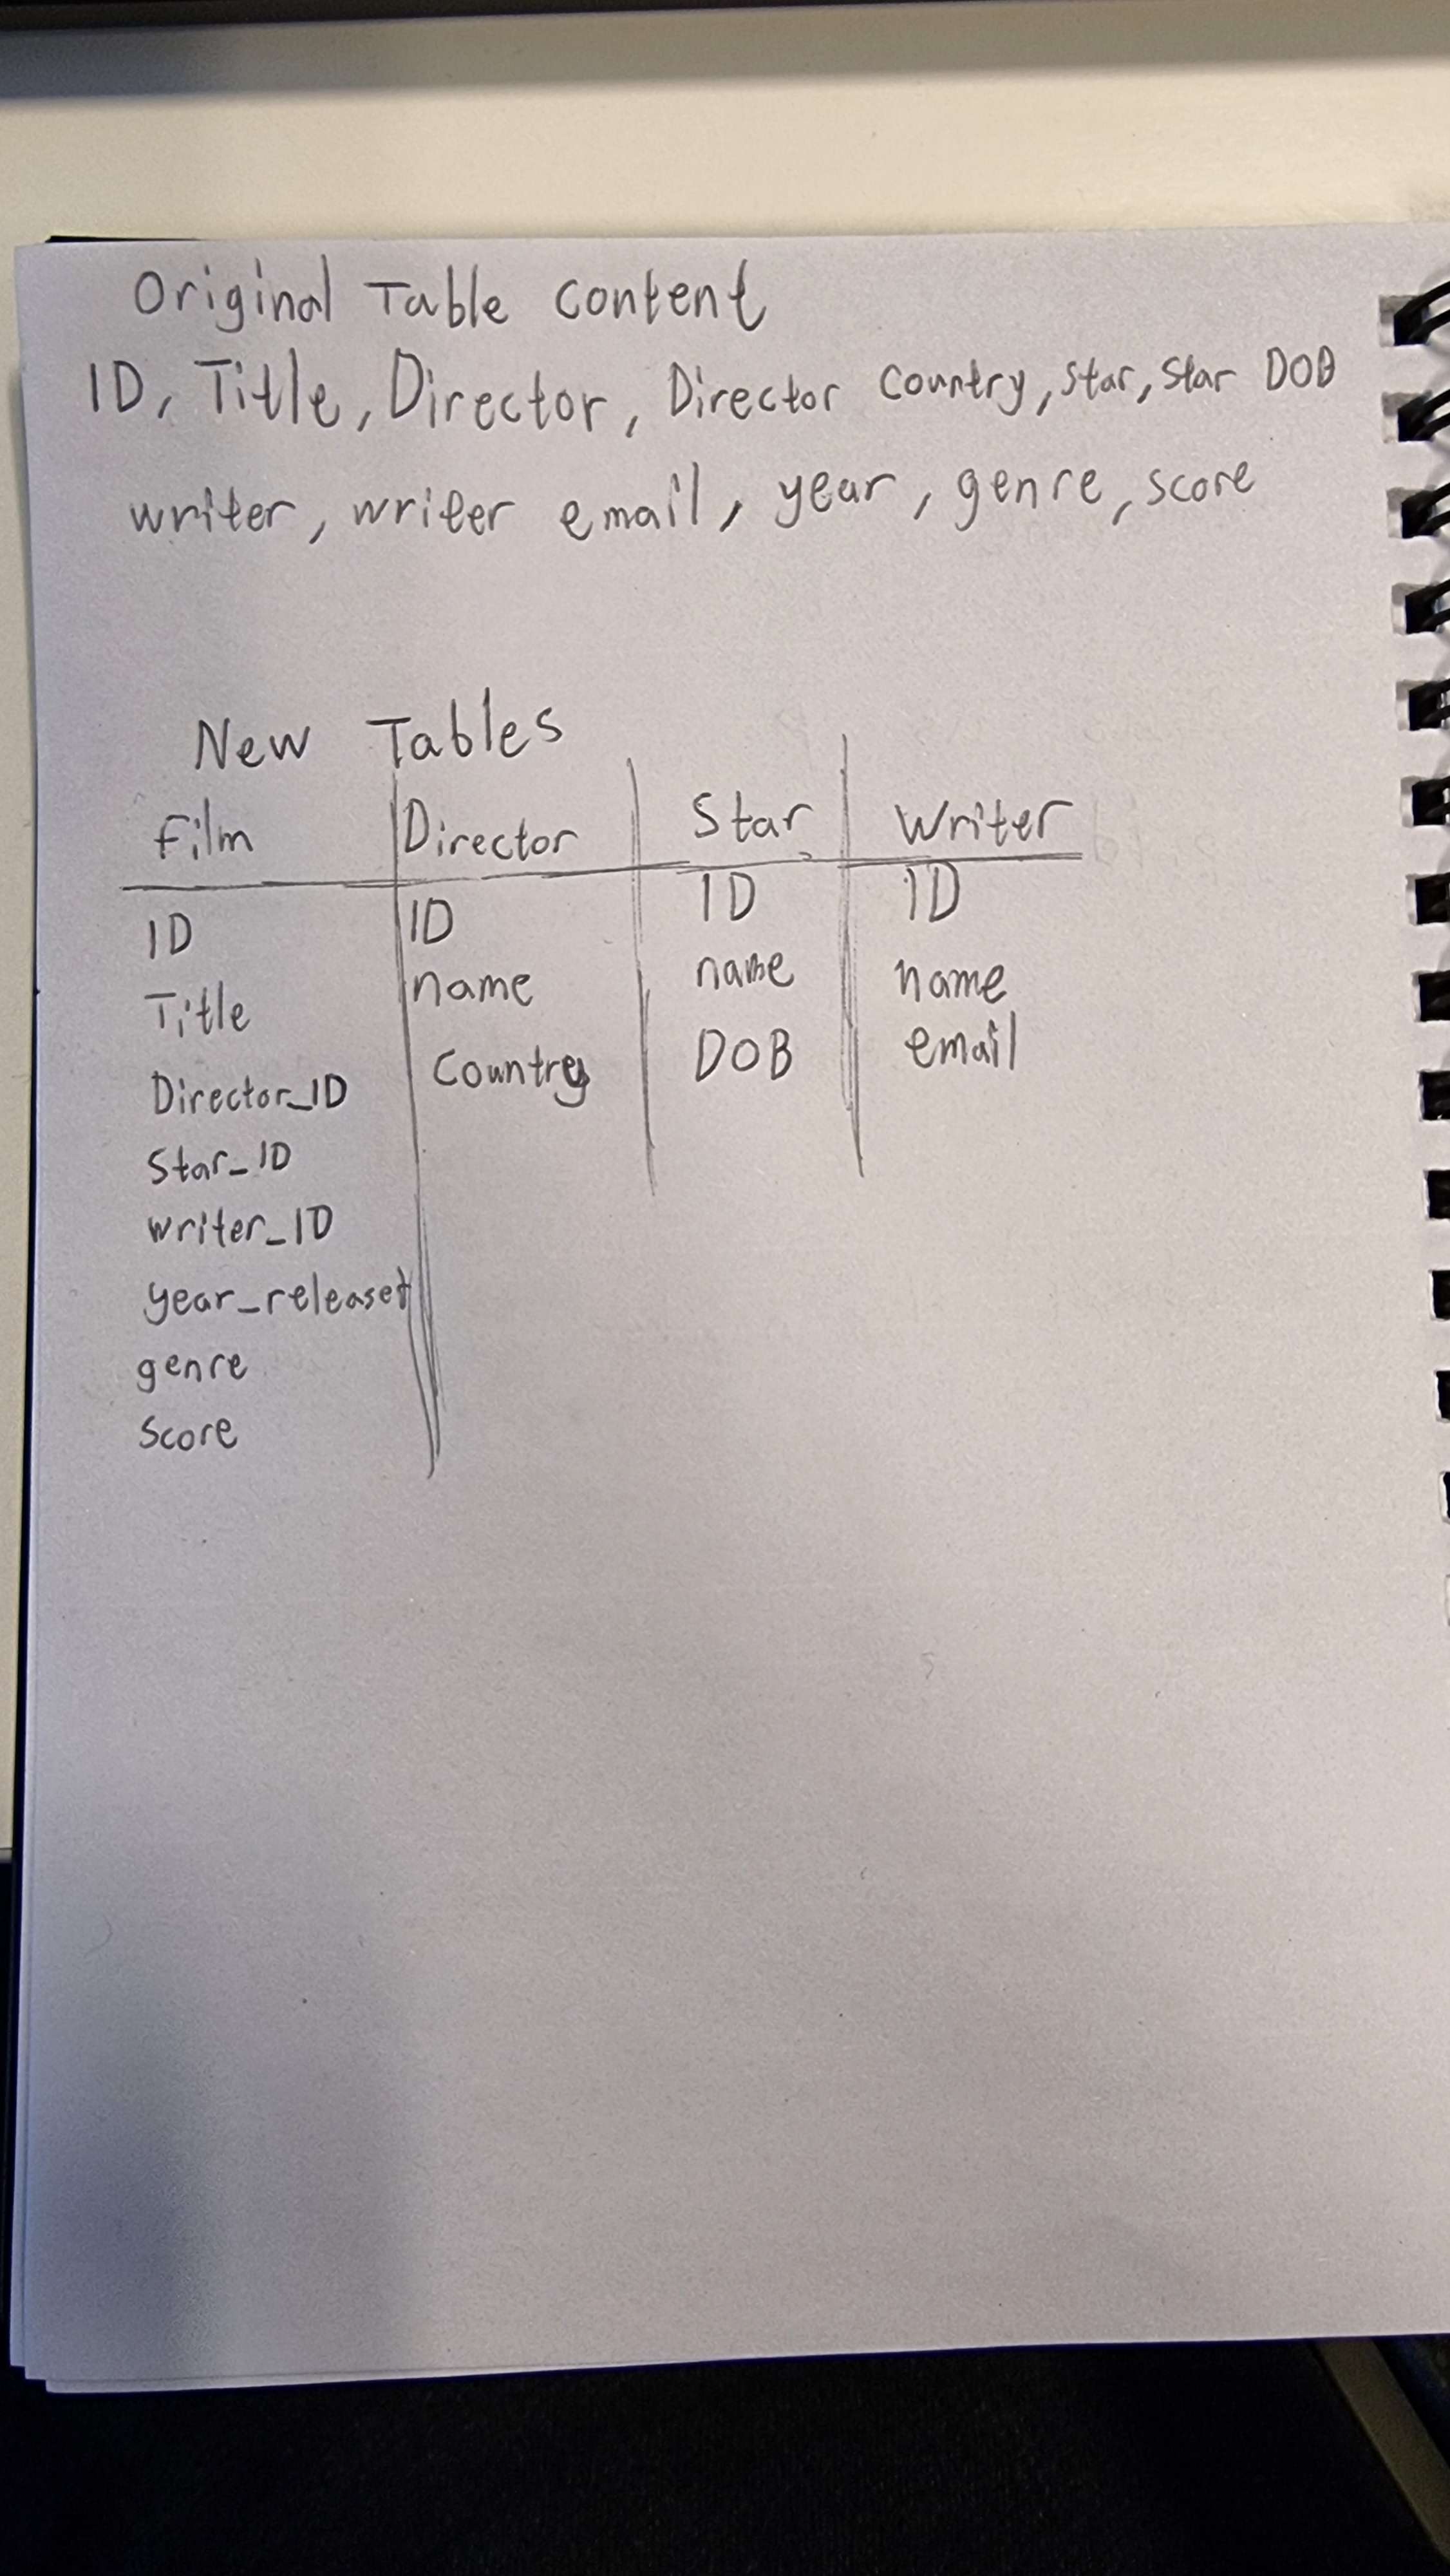 Original Table content
ID, Title, Director, Director Country, Star, Star DOB
writer, writer email, year, genre, score
New Tables
Film Director Star Writer
ID ID ID ID
Title name name name
Director_ID Country DOB email
Star_ID
writer_ID
year_released
genre
score